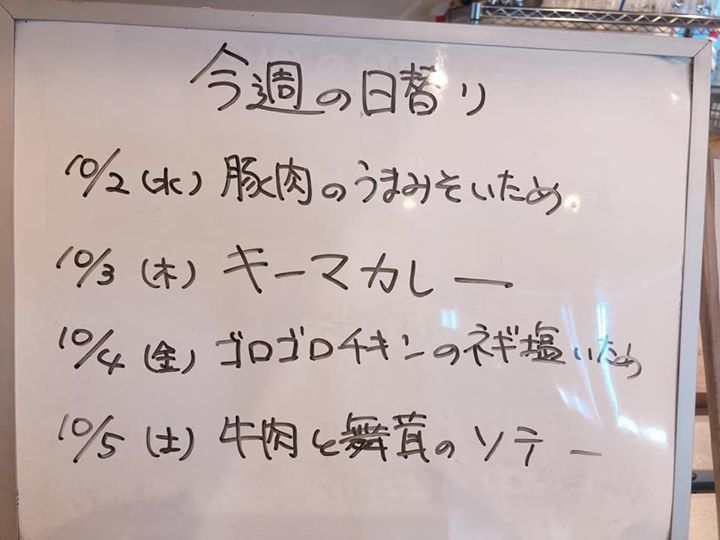 今週の日替り
10/2(水)豚肉のうまみそいため
10/3(木)キーマカレー
10/4(金)ゴロゴロチキンのネギ塩いため
10/5(土)牛肉と舞茸のソテー